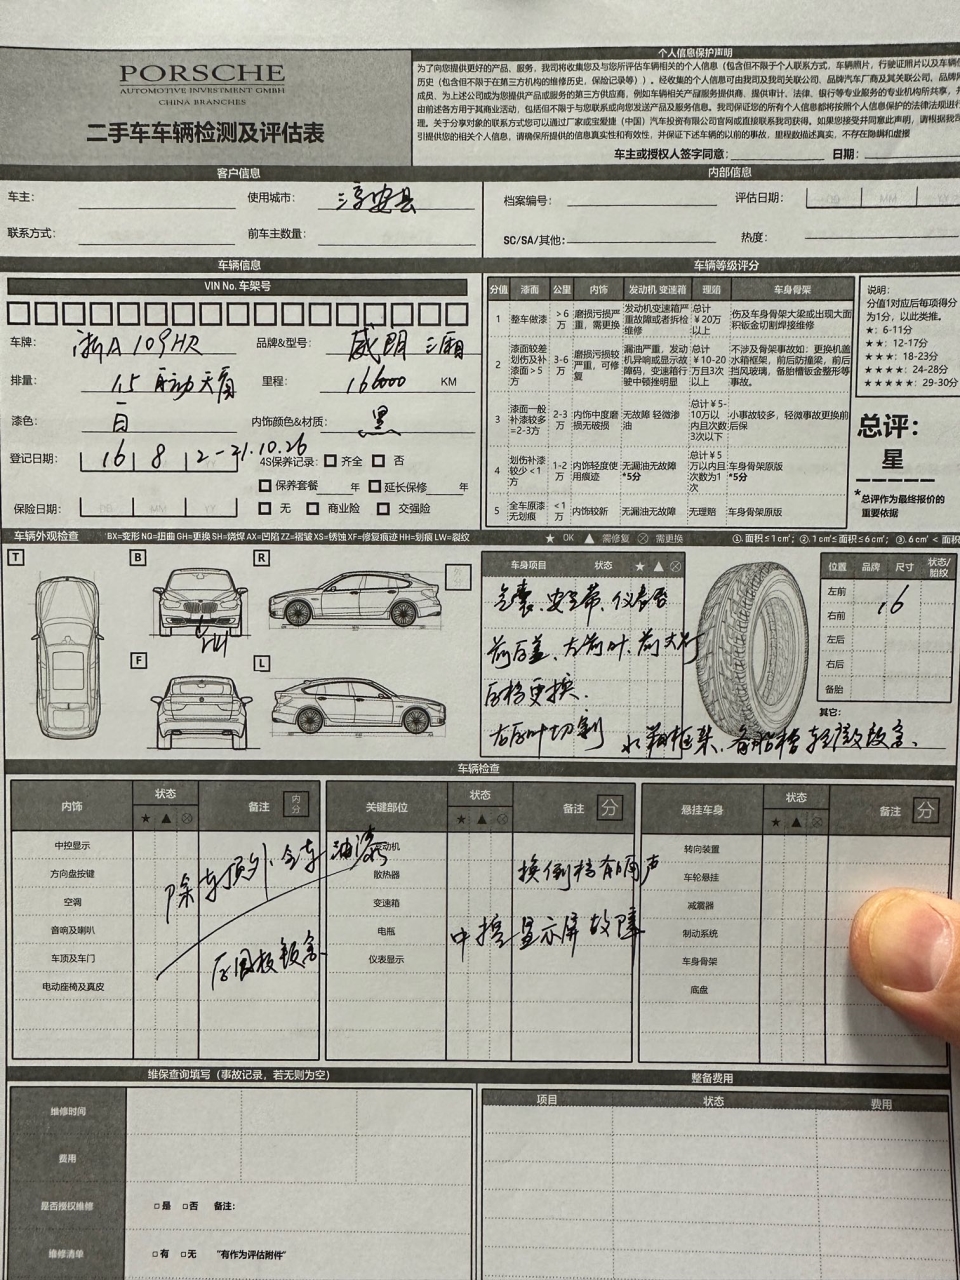 PORSCHE
AUTOMOTIVE INVESTMENT GMBH
CHINA BRANCHES
二手车车辆检测及评估表
个人信息保护声明
为了向您提供更好的产品、服务，我司将收集您及与您所评估车辆相关的个人信息（包含但不限于个人联系方式，车辆照片，行驶证照片以及车辆
历史（包含但不限于在第三方机构的维修历史，保险记录等））。经收集的个人信息可由我司及我司关联公司、品牌汽车厂商及其关联公司，品牌
成员、为上述公司或为您提供产品或服务的第三方供应商，例如车辆相关产品服务提供商、提供审计、法律、银行等专业服务的专业机构所共享，并
由前述各方用于其商业活动，包括但不限于与您联系或向您发送产品及服务信息。我司保证您的所有个人信息都将按照个人信息保护的法律法规进行
理。关于分享对象的联系方式您可以通过厂家或宝爱捷（中国）汽车投资有限公司官网或直接联系我司获得。如果您接受并同意此声明，请根据我司
引提供您的相关个人信息，请确保所提供的信息真实性和有效性，并保证下述车辆的以前的事故，里程数描述真实，不存在隐瞒和虚报
车主或授权人签字同意： 日期：
客户信息 内部信息
车主： 使用城市： 淳安县 档案编号： 评估日期：
联系方式： 前车主数量： SC/SA/其他： 热度：
车辆信息 车辆等级评分
VIN No. 车架号
车牌： 浙A109HR 品牌&型号： 威朗 三厢
排量： 1.5 自动 天窗 里程： 166000 KM
漆色： 白 内饰颜色&材质： 黑
登记日期： 16 8 2-21.10.26 4S保养记录： 齐全 否
保养套餐 年 延长保修 年
保险日期： 无 商业险 交强险
分值 漆面 公里 内饰 发动机 变速箱 理赔 车身骨架
1 整车做漆 >6万 磨损污损严重，需更换 发动机变速箱严重故障或者拆检维修 总计￥20万以上 伤及车身骨架大梁或出现大面积钣金切割焊接维修
2 漆面较差划伤及补漆面>5方 3-6万 磨损污损较严重，可修复 漏油严重，发动机异响或显示故障码，变速箱行驶中顿挫明显 总计￥10-20万且3次以上 不涉及骨架事故如：更换机盖水箱框架，前后防撞梁，前后挡风玻璃，备胎槽钣金整形等事故。
3 漆面一般补漆较多=2-3方 2-3万 内饰中度磨损无破损 无故障 轻微渗油 总计￥5-10万以内且次数3次以下 小事故较多，轻微事故更换前后保
4 划伤补漆较少<1方 1-2万 内饰轻度使用痕迹 无漏油无故障 *5分 总计￥5万以内且次数为1次 车身骨架原版 *5分
5 全车原漆无划痕 <1万 内饰较新 无漏油无故障 无理赔 车身骨架原版
说明：
分值1对应后每项得分
为1分，以此类推。
★：6-11分
★★：12-17分
★★★：18-23分
★★★★：24-28分
★★★★★：29-30分
总评：
星
*总评作为最终报价的
重要依据
车辆外观检查 BX=变形 NQ=扭曲 GH=更换 SH=烧焊 AX=凹陷 ZZ=褶皱 XS=锈蚀 XF=修复痕迹 HH=划痕 LW=裂纹 ★ OK ▲ 需修复 ⊗ 需更换 ①. 面积≤1c㎡；②. 1c㎡≤面积≤6c㎡；③.6c㎡<面积
T B R
F L
车身项目 状态 ★ ▲ ⊗
气囊、安全带、仪表台
前后盖、左前叶、前大灯
后档更换.
右后叶切割 水箱框架、备胎槽轻微故害、
位置 品牌 尺寸 状态/胎纹
左前
右前 16
左后
右后
备胎
其它：
车辆检查
内饰 状态 备注 内分 关键部位 状态 备注 分 悬挂车身 状态 备注 分
★ ▲ ⊗ ★ ▲ ⊗ ★ ▲ ⊗
中控显示 发动机 转向装置
方向盘按键 散热器 车轮悬挂
空调 变速箱 减震器
音响及喇叭 电瓶 制动系统
车顶及车门 仪表显示 车身骨架
电动座椅及真皮 底盘
除车顶外全车油漆
后围板钣金
换倒档有响声
中控显示屏故障
维保查询填写（事故记录，若无则为空） 整备费用
维修时间 项目 状态 费用
费用
是否授权维修 是 否 备注：
维修清单 有 无 "有作为评估附件"